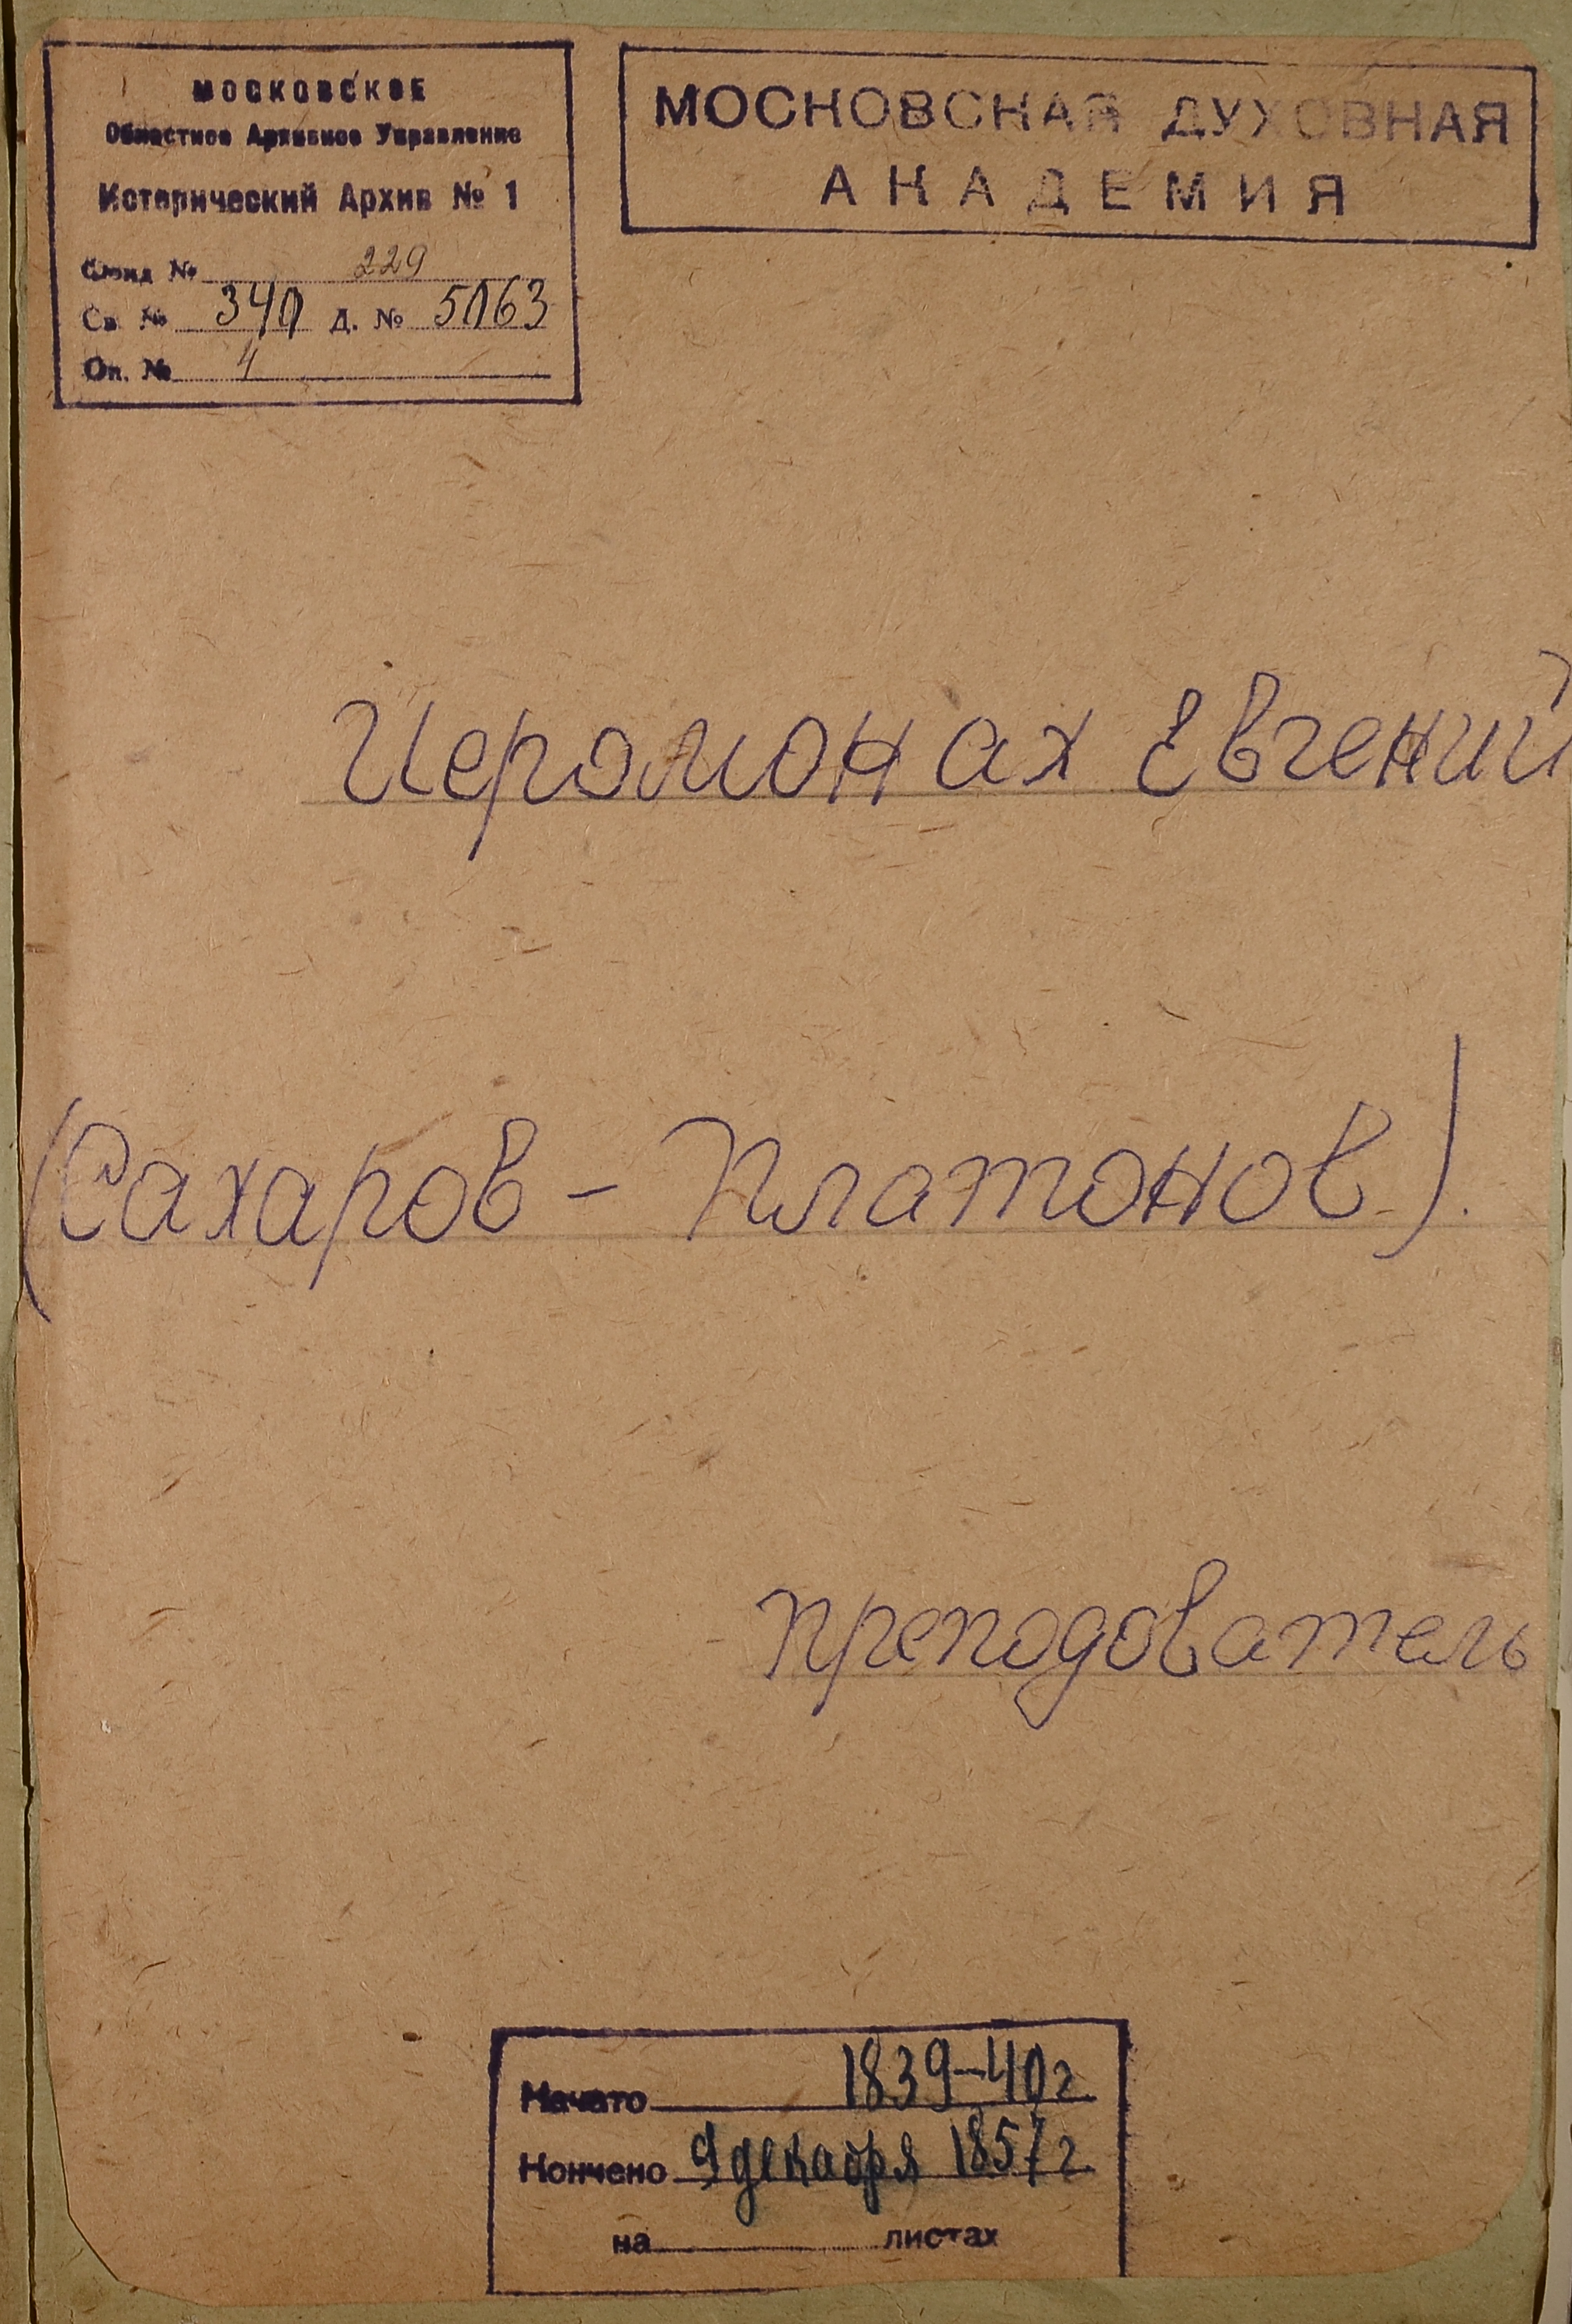 МОСКОВСКОЕ
Областное Архивное Управление
Исторический Архив № 1
Фонд № 229
Св. № 340 Д. № 5063
Оп. № 4
МОСКОВСКАЯ ДУХОВНАЯ
АКАДЕМИЯ
Иеромонах Евгений
(Сахаров - Платонов).
преподователь
Начато 1839-40 г.
Кончено 9 декабря 1857 г.
на листах